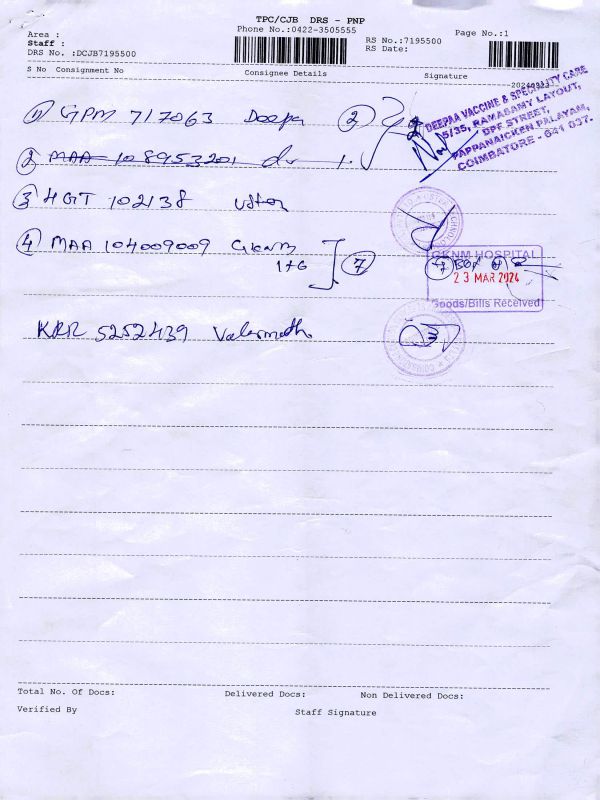 TPC/CJB DRS - PNP
Phone No.:0422-3505555
Page No.:1
Area :
Staff :
DRS No. :DCJB7195500
RS No.:7195500
RS Date:
S No Consignment No Consignee Details Signature
1 GPM 717063 Deepa 2
DEEPAA VACCINE & SPECIALITY CARE
5/35, RAMASAMY LAYOUT,
DPF STREET,
PAPPANAICKEN PALAYAM,
COIMBATORE - 641 037.
2 MAA 108953201 1.
3 HGT 102138
4 MAA 104009009 GKNM
1+6 7
GKNM HOSPITAL
23 MAR 2024
Goods/Bills Received
KRR 5252439
Total No. Of Docs: Delivered Docs: Non Delivered Docs:
Verified By Staff Signature